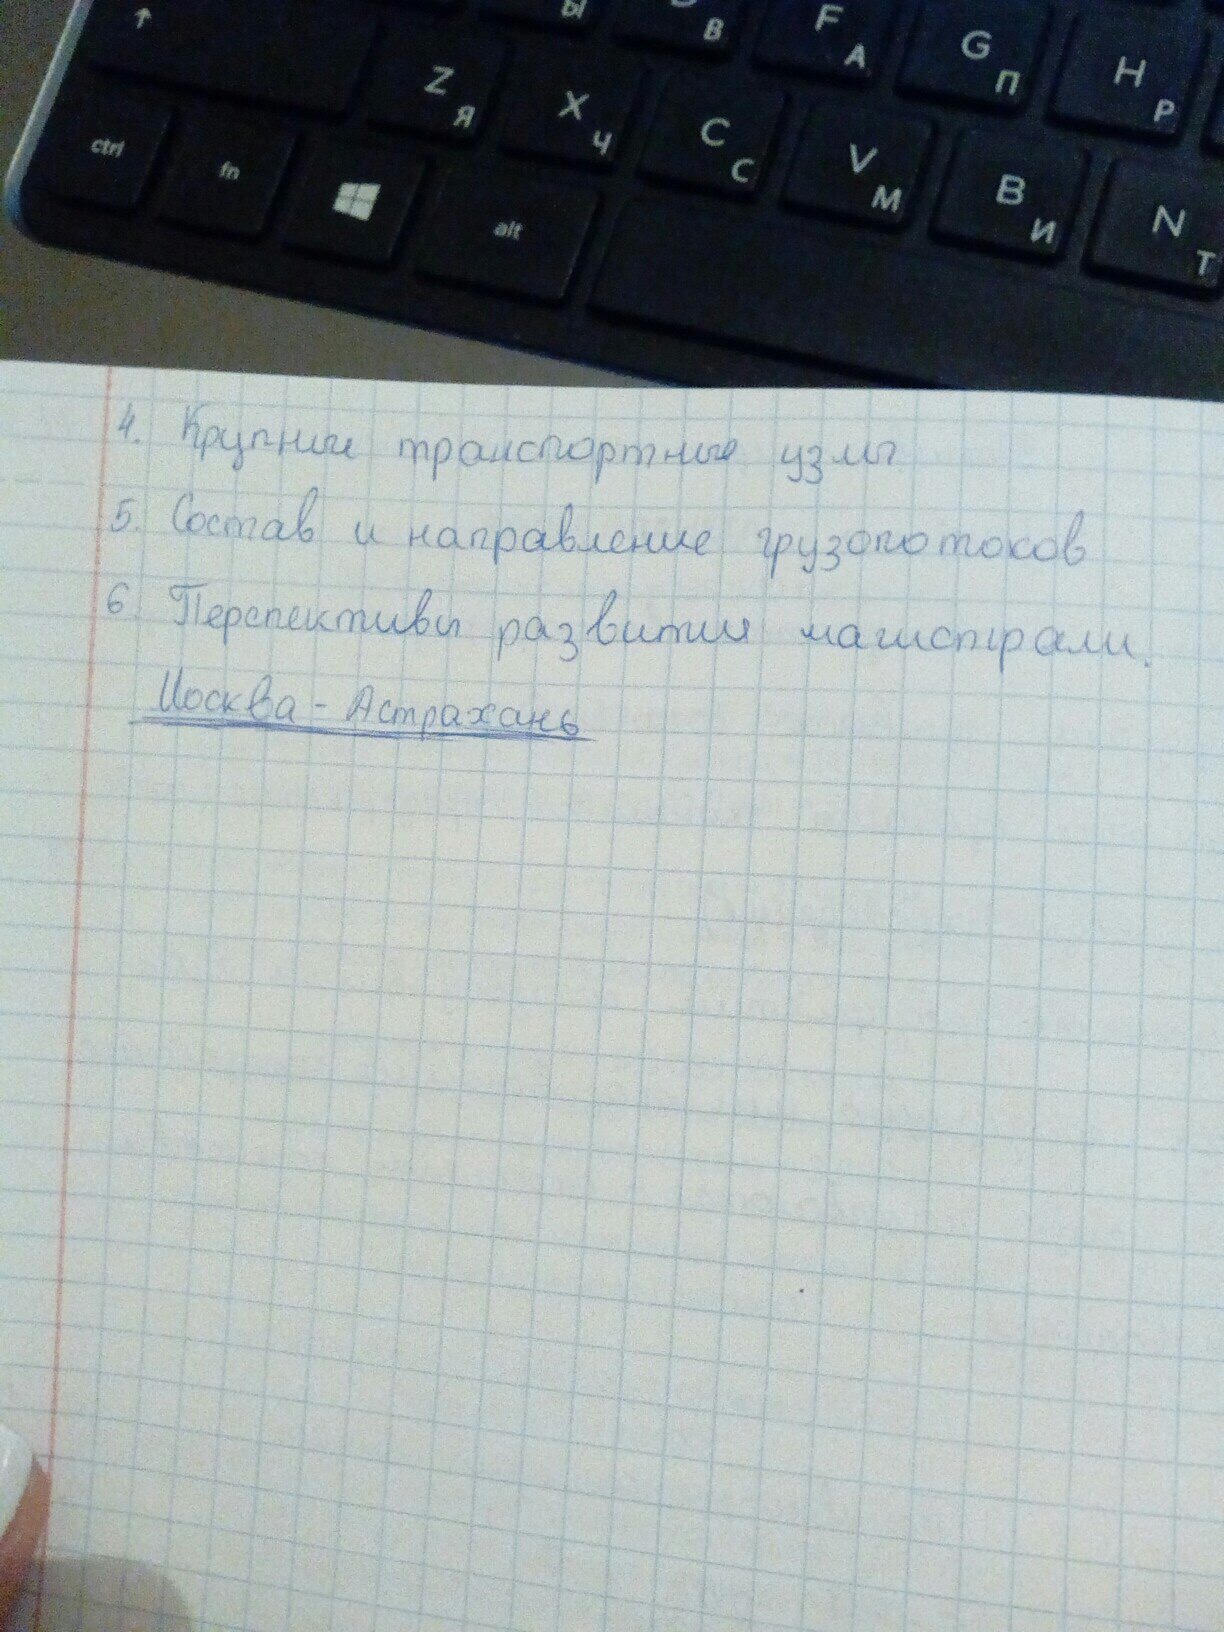 ы В F А G П H Р
Z Я X Ч C С V М B И N Т
ctrl fn alt
4. Крупные транспортные узлы
5. Состав и направление грузопотоков
6. Перспективы развития магистрали.
Москва - Астрахань